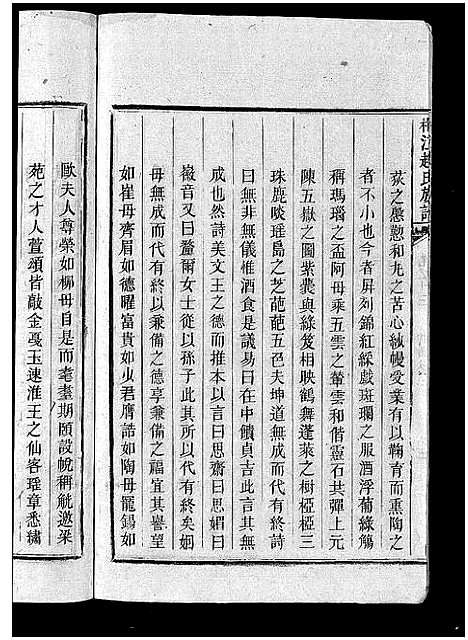 梅江趙氏族譜
荻之懃懃和丸之苦心紈幔受業有以鞠育而熏陶之
者不小也今者屏列錦紅綵戲斑斕之服酒浮葡綠觴
稱瑪瑙之盃阿母乘五雲之輦雲和偕靈石其彈上元
陳五嶽之圖紫囊與綠笈相映鶴舞蓬萊之樹椏椏三
珠鹿啖瑤島之芝葩葩五色夫坤道無成而有終詩
曰無非無儀惟酒食是議易曰在中饋貞吉此言其無
成也然詩美文王之德而推本曰思齋曰思媚曰
徽音又曰釐爾女士從以孫子此其所以代有終矣姻
母無成而代終以兼備之德享兼備之福宜其譽望
如崔母齊眉如德曜富貴如少君膺誥如陶母寵錫如
歐夫人尊榮如柳母自是而耄耋期頤設帨稱觥邀梁
苑之才人萱頌皆敲金戛玉速淮王之仙客瑤章悉繡